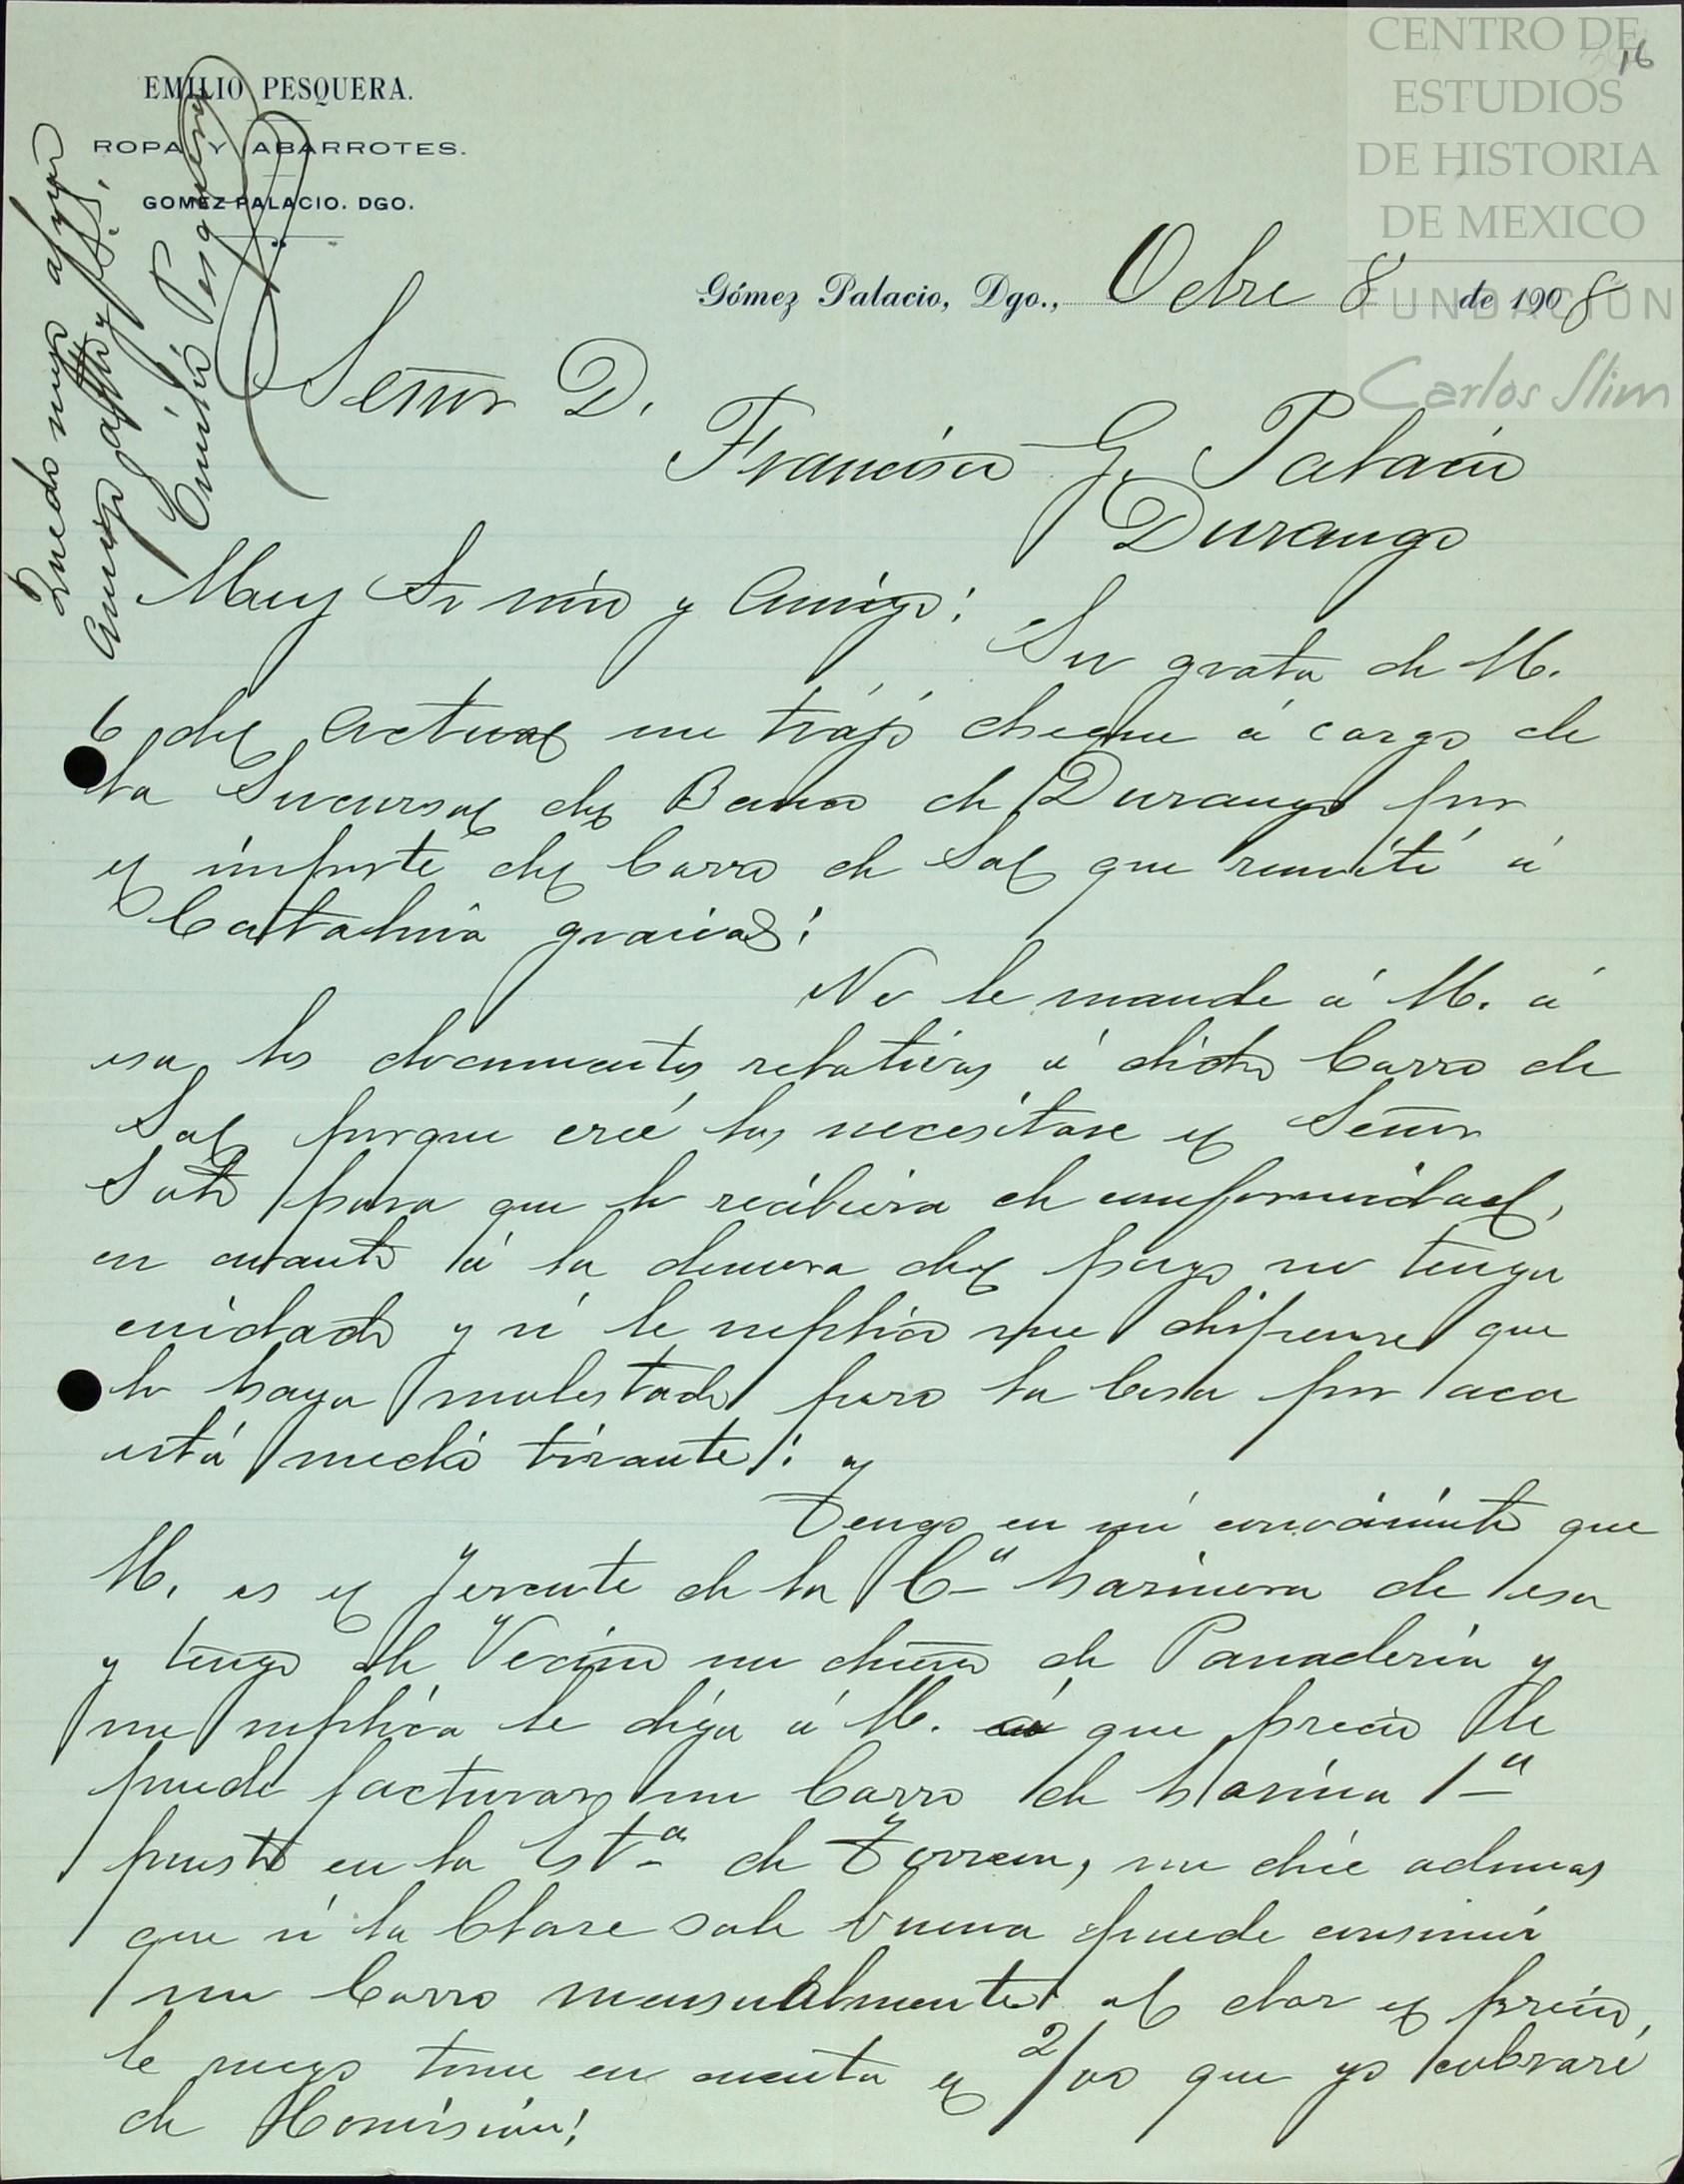 CENTRO DE
ESTUDIOS
DE HISTORIA
DE MEXICO
FUNDACIÓN
Carlos Slim
16
EMILIO PESQUERA.
ROPA Y ABARROTES.
GOMEZ PALACIO. DGO.
Gómez Palacio, Dgo., Octre 8 de 1908
Señor D.
Francisco G. Palacio
Durango
Muy Sr mio y Amigo:
Su grata de U.
6 del actual me trajó cheque á cargo de
la Sucursal del Banco de Durango por
el importe del Carro de Sal que remití á
Cataluña gracias!
No le mande á U. á
esa los documentos relativos á dicho Carro de
Sal porque creé los necesitase el Señor
Soto para que lo recibiera de conformidad,
en cuanto á la demora del pago no tenga
cuidado y si le suplico me dispense que
lo haya molestado pero la cosa por aca
está medio tirante!
Tengo en mi conocimiento que
U. es el Jerente de la Cª harinera de esa
y tengo de Vecino un dueño de Panaderia y
me suplica le diga á U. á que precio le
puede facturar un Carro de harina 1ª
puesto en la Estª de Torreon, me dice ademas
que si la Clase sale buena puede consumir
un Carro mensualmente al dar el precio,
le ruego tome en cuenta el 2/00 que yo cobraré
de Comisión!
Quedo suyo afmo
Amigo atto y S.S.
Emilio Pesquera